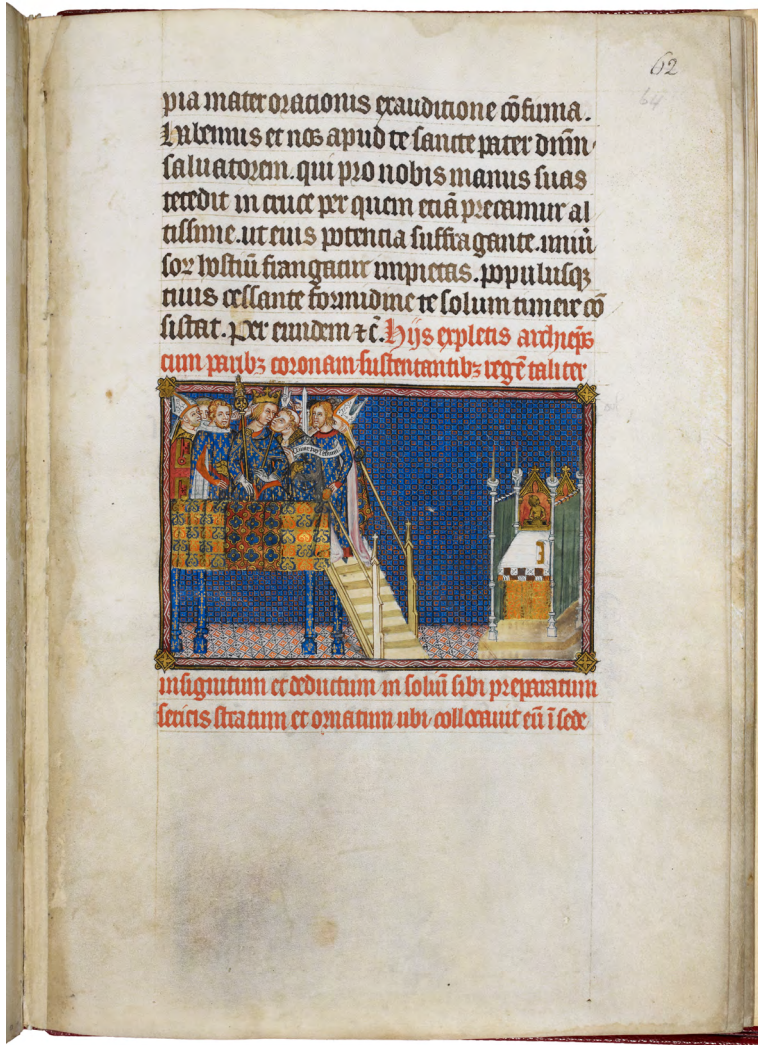 62
64
pia mater orationis exauditione cōfirma.
Habemus et nos apud te sancte pater dnm̄
saluatorem. qui pro nobis manus suas
tetedit in cruce per quem eciā precamur al
tissime. ut eius potencia suffragante. uniū
soꝝ hostiū frangatur impietas. populusqꝫ
tuus cessante formidine te solum timere cō
sistat. Per eundem ⁊ c̄. Hijs expletis archiep̄s
cum paribꝫ coronam sustentantibꝫ regē taliter
insignitum et deductum in soliū sibi preparatum
sericis stratum et ornatum ubi collocauit eū ī sede